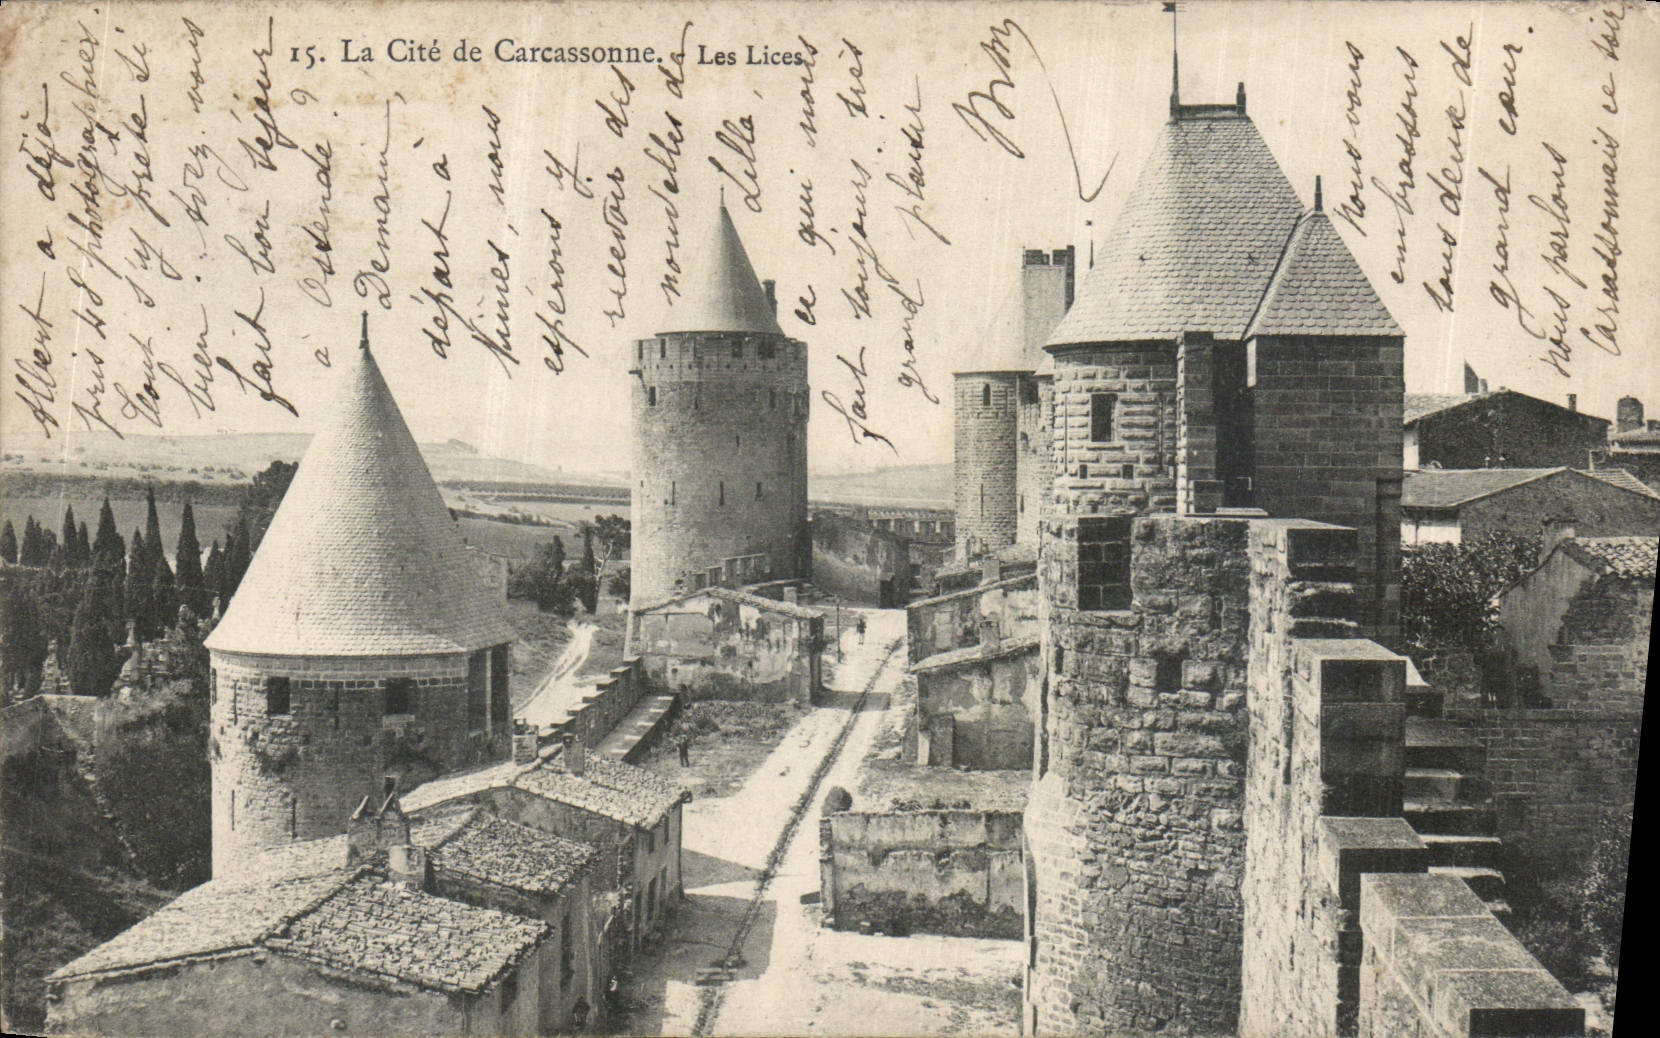 15. La Cité de Carcassonne. - Les Lices
Albert a déjà
pris 48 photographies.
Tout s'y prête si
bien. Avez-vous
fait bon séjour
à Ostende ?
Demain,
départ à
Nîmes, nous
espérons y
recevoir des
nouvelles de
Lille,
ce qui nous
fait toujours très
grand plaisir
Nous vous
embrassons
tous deux de
grand cœur.
Nous parlons
Carcassonnais ce soir